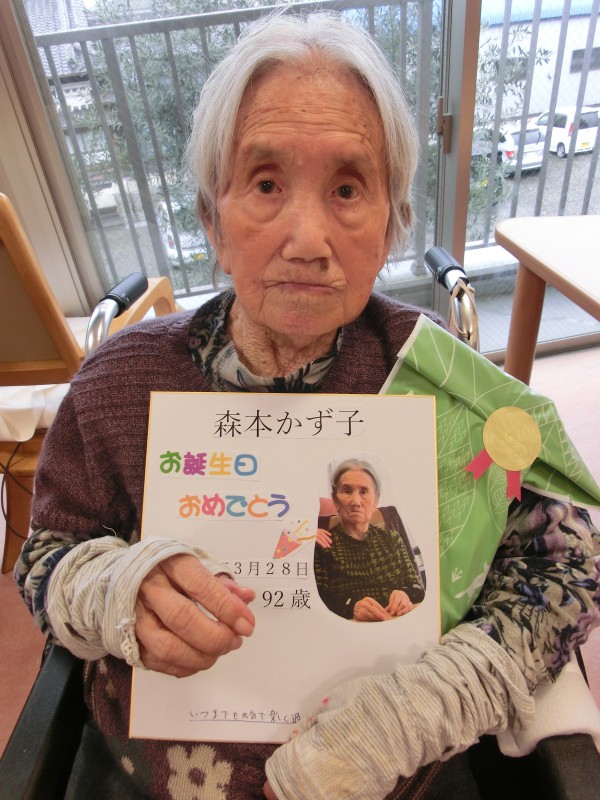 森本かず子
お誕生日
おめでとう
3月28日
92歳
いつまでも元気で